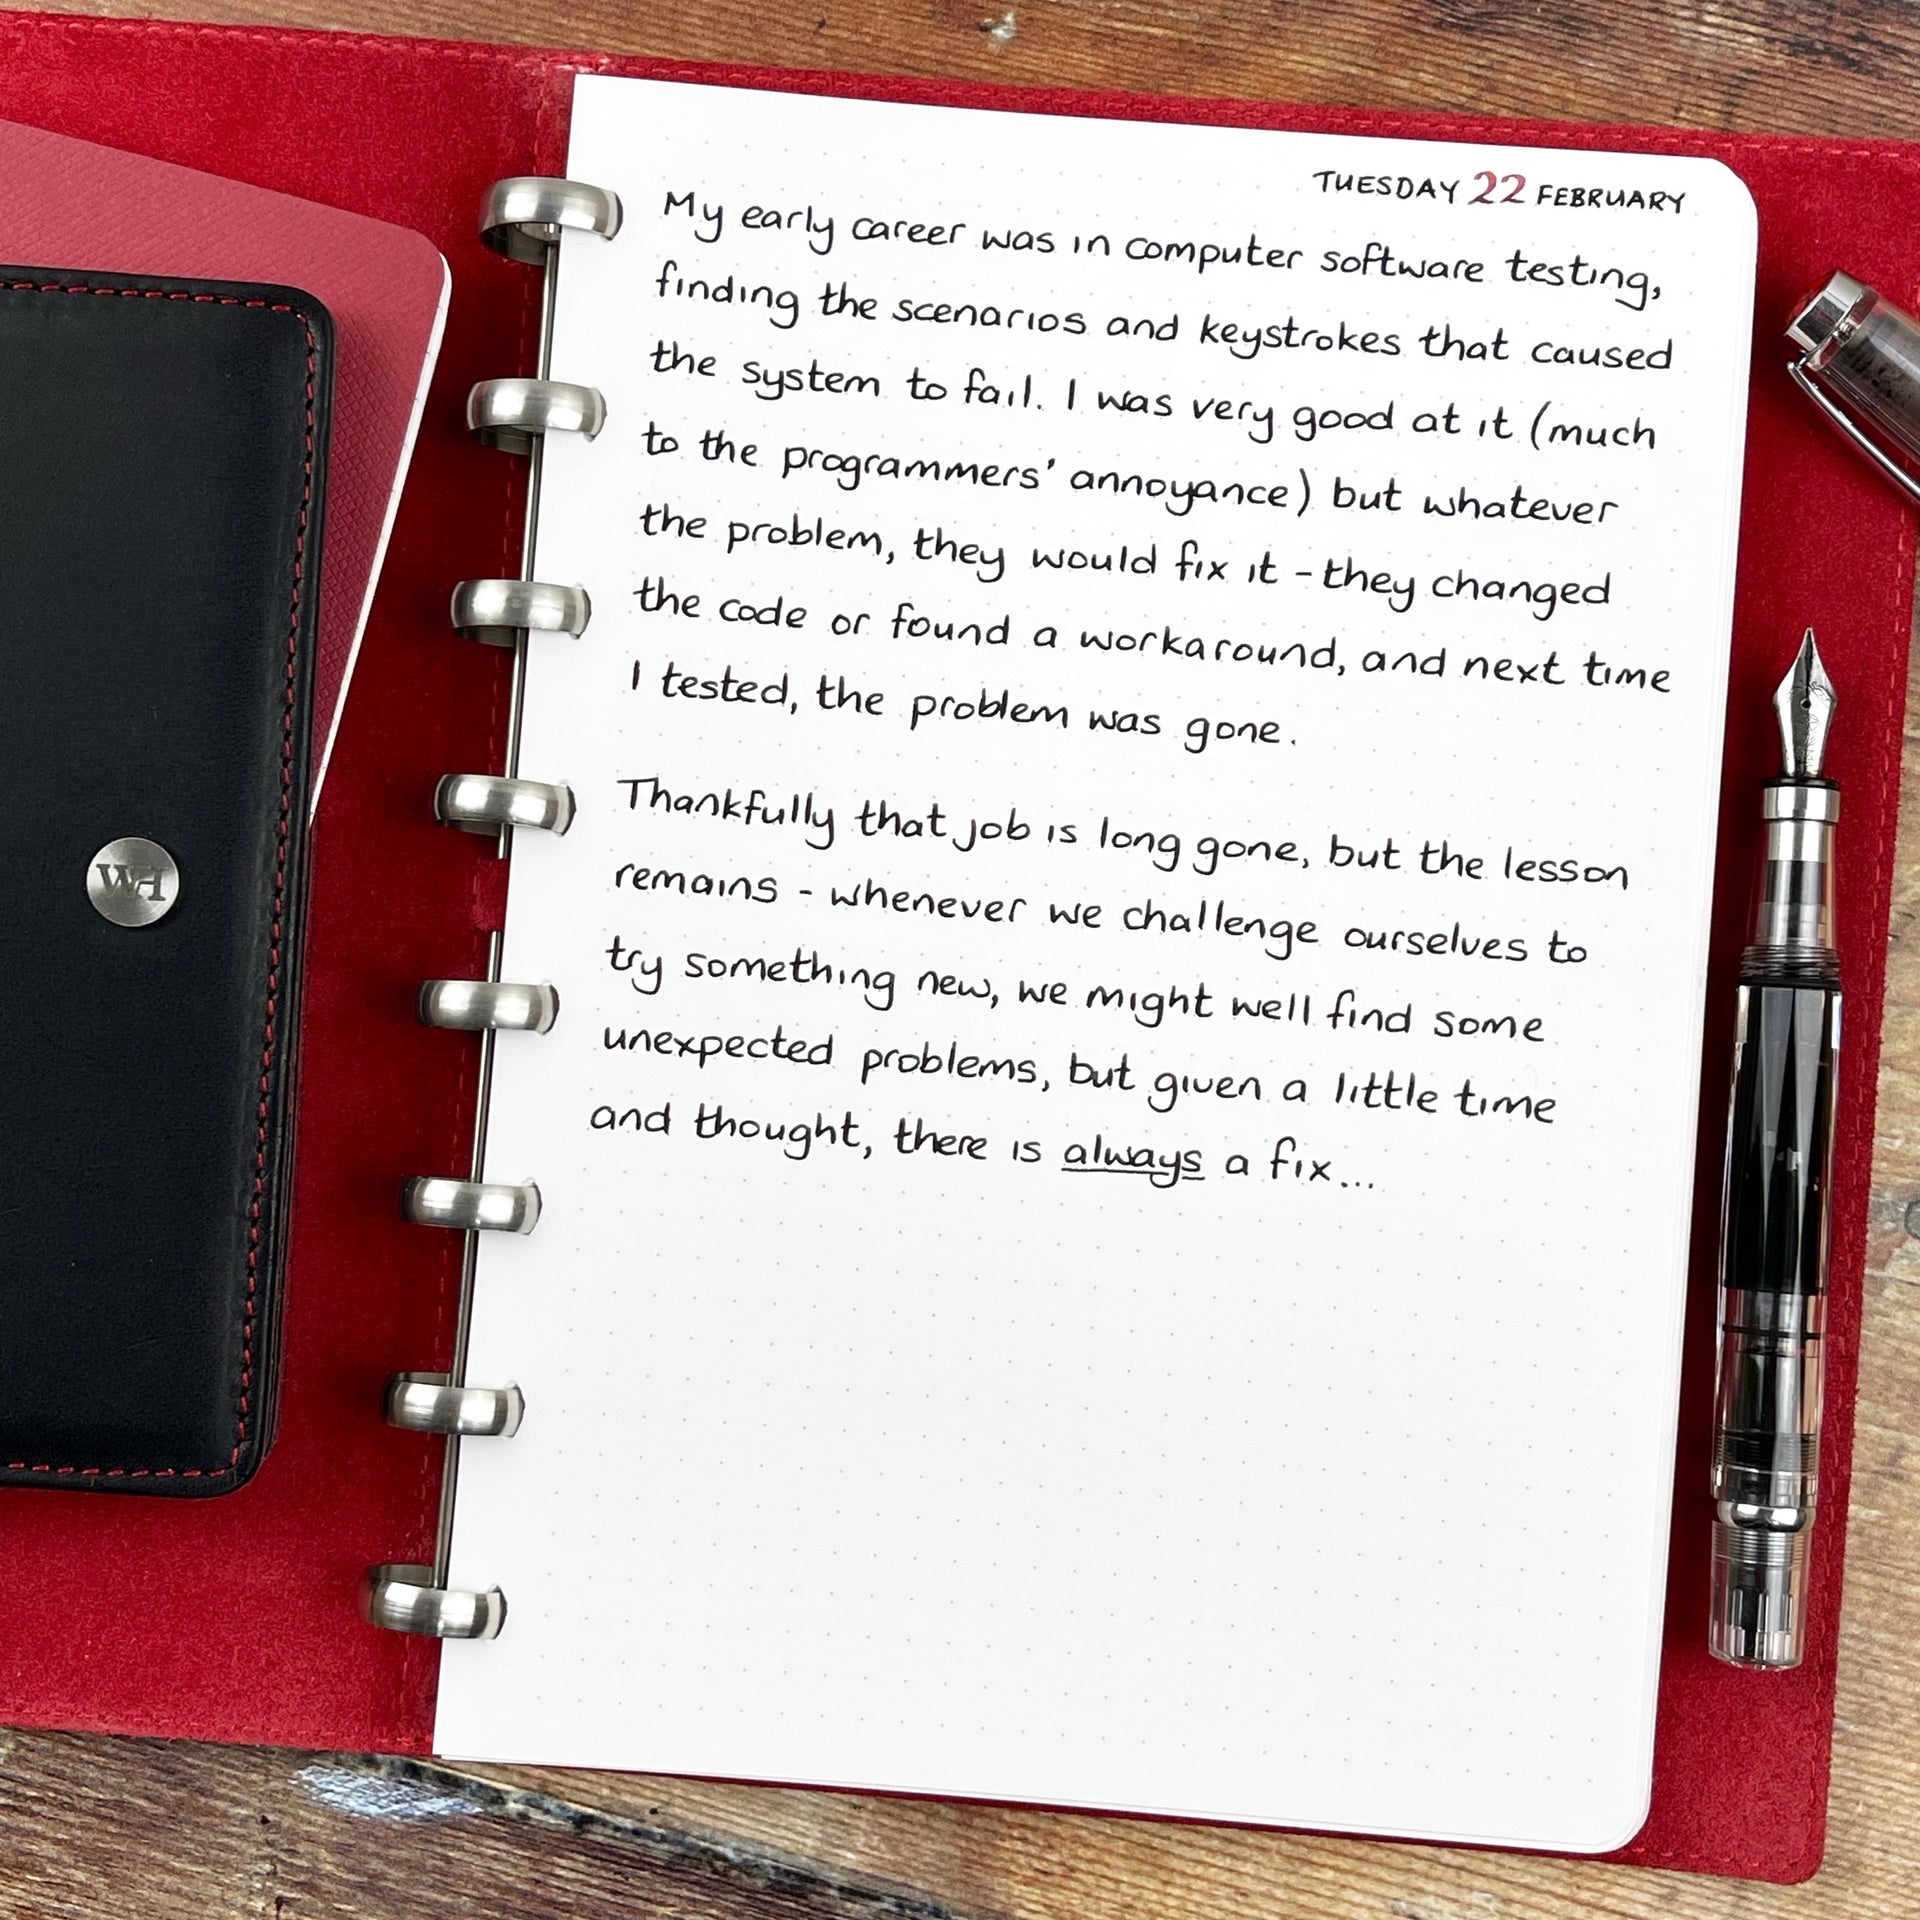 TUESDAY 22 FEBRUARY
My early career was in computer software testing,
finding the scenarios and keystrokes that caused
the system to fail. I was very good at it (much
to the programmers' annoyance) but whatever
the problem, they would fix it - they changed
the code or found a workaround, and next time
I tested, the problem was gone.
Thankfully that job is long gone, but the lesson
remains - whenever we challenge ourselves to
try something new, we might well find some
unexpected problems, but given a little time
and thought, there is always a fix...
WH